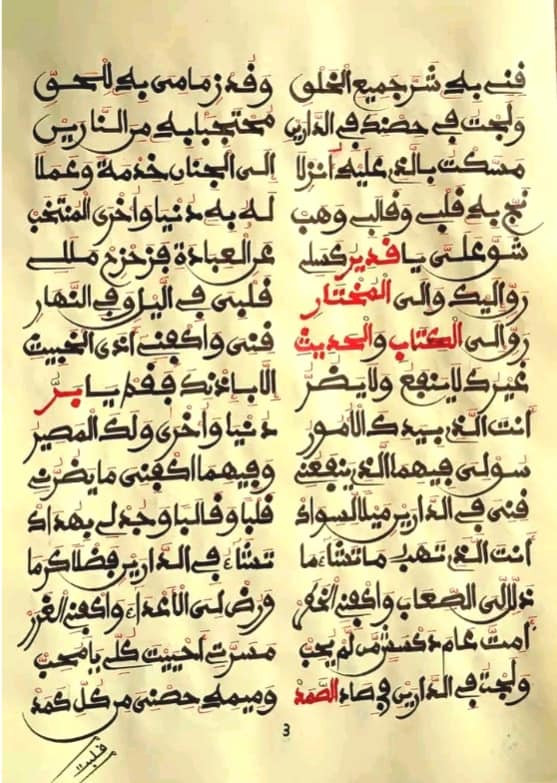 قني به شر جميع الخلق وقد زمامي به للحق
ولجت في حصنك في الدارين محتجبا به من النارين
مسكت بالذي عليه أنزلا إلى الجنان خدمة وعملا
نج به قلبي وقالبي وهب له به دنيا وأخرى المنتخب
شق علي يا قدير كسلي عن العبادة فزحزح مللي
رو إليك وإلى المختار قلبي في اليل وفي النهار
رو إلى الكتاب والحديث قني واكفني أذى الخبيث
غيرك لا ينفع ولا يضر إلا بإذنك فقم يا بر
أنت الذي بيدك الأمور دنيا وأخرى ولك المصير
سق لي فيهما الذي ينفعني وفيهما اكفني ما يضرني
قني في الدارين ميلا لسواك قلبا وقالبا وجد لي بهداك
أنت الذي تهب ما تشاء ما تشاء في الدارين فضلا كرما
ذلل لي الصعاب واكفني ورض لي الأعداء واكفني الغرر
أمت عام دكسش من لم يحب مسرتي أحييت كلي يا محب
ولجت في الدارين في صاد الصمد وميمه حصني من كل كمد
3
قلبت